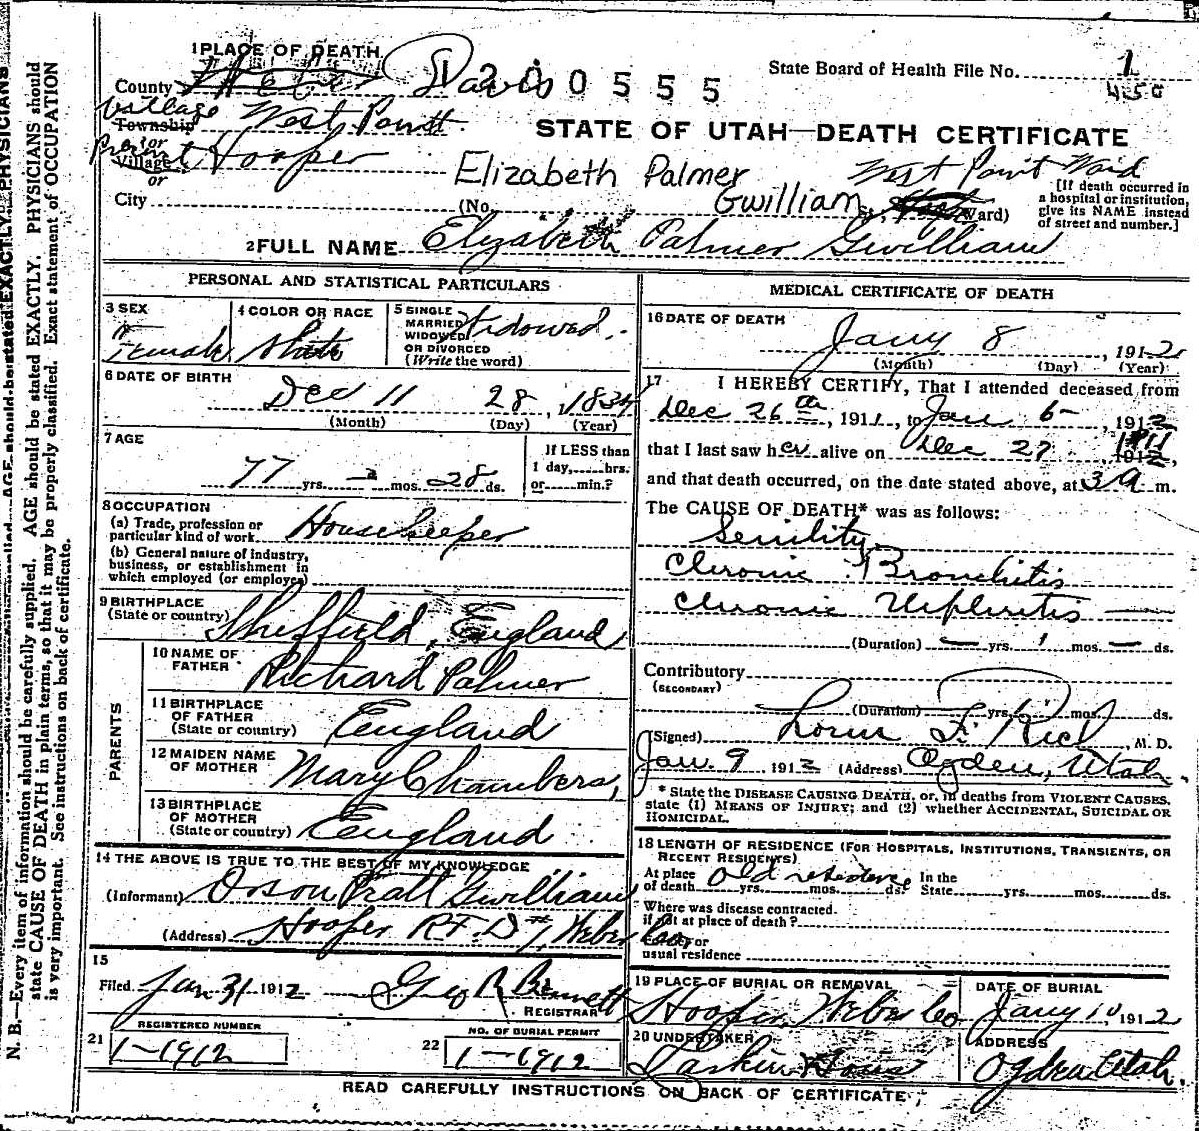 N. B.—Every item of information should be carefully supplied. AGE should be stated EXACTLY. PHYSICIANS should
state CAUSE OF DEATH in plain terms, so that it may be properly classified. Exact statement of OCCUPATION
is very important. See instructions on back of certificate.
1 PLACE OF DEATH
County Weber Davis
1 2 0 0 5 5 5
State Board of Health File No. 1
450
Village Township West Point
STATE OF UTAH—DEATH CERTIFICATE
Precinct or Village Hooper
Elizabeth Palmer Gwilliam
West Point Ward
or
City (No. St., Ward)
[If death occurred in
a hospital or institution,
give its NAME instead
of street and number.]
2 FULL NAME Elizabeth Palmer Gwilliam
PERSONAL AND STATISTICAL PARTICULARS
3 SEX
Female
4 COLOR OR RACE
White
5 SINGLE
MARRIED
WIDOWED
OR DIVORCED
(Write the word)
Widowed.
6 DATE OF BIRTH
Dec 11 28, 1834
(Month) (Day) (Year)
7 AGE
77 yrs. — mos. 28 ds.
If LESS than
1 day,......hrs.
or......min.?
8 OCCUPATION
(a) Trade, profession or
particular kind of work Housekeeper
(b) General nature of industry,
business, or establishment in
which employed (or employer)
9 BIRTHPLACE
(State or country) Sheffield, England
PARENTS
10 NAME OF
FATHER Richard Palmer
11 BIRTHPLACE
OF FATHER
(State or country) England
12 MAIDEN NAME
OF MOTHER Mary Chambers,
13 BIRTHPLACE
OF MOTHER
(State or country) England
14 THE ABOVE IS TRUE TO THE BEST OF MY KNOWLEDGE
(Informant) Orson Pratt Gwilliam
(Address) Hooper R.F.D #1, Weber Co
15
Filed Jan 31 1912 Geo R Bennett
REGISTRAR
21 REGISTERED NUMBER
1-1912
22 NO. OF BURIAL PERMIT
1-1912
MEDICAL CERTIFICATE OF DEATH
16 DATE OF DEATH
Jany 8, 1912
(Month) (Day) (Year)
17 I HEREBY CERTIFY, That I attended deceased from
Dec 26th, 1911, to Jan 6-, 1912
that I last saw her alive on Dec 27 1911 1912,
and that death occurred, on the date stated above, at 3 a m.
The CAUSE OF DEATH* was as follows:
Senility
Chronic Bronchitis
Chronic Nephritis —
(Duration) — yrs. 1 mos. — ds.
Contributory
(SECONDARY)
(Duration) yrs. mos. ds.
(Signed) F. Rich, M. D.
Jan. 9 1912 (Address) Ogden, Utah.
* State the DISEASE CAUSING DEATH, or, in deaths from VIOLENT CAUSES,
state (1) MEANS OF INJURY; and (2) whether ACCIDENTAL, SUICIDAL OR
HOMICIDAL.
18 LENGTH OF RESIDENCE (FOR HOSPITALS, INSTITUTIONS, TRANSIENTS, OR
RECENT RESIDENTS)
At place
of death old residence yrs. mos. ds. In the
State yrs. mos. ds.
Where was disease contracted.
if not at place of death?
Former or
usual residence
19 PLACE OF BURIAL OR REMOVAL
Hooper, Weber Co
DATE OF BURIAL
Jany 10, 1912
20 UNDERTAKER
Larkin & Sons
ADDRESS
Ogden Utah.
READ CAREFULLY INSTRUCTIONS ON BACK OF CERTIFICATE